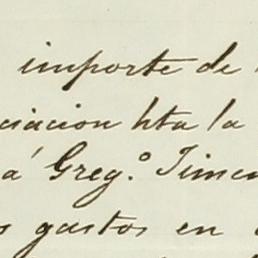 importe de
ciacion hta la
á Greg.º Jimen
s gastos en